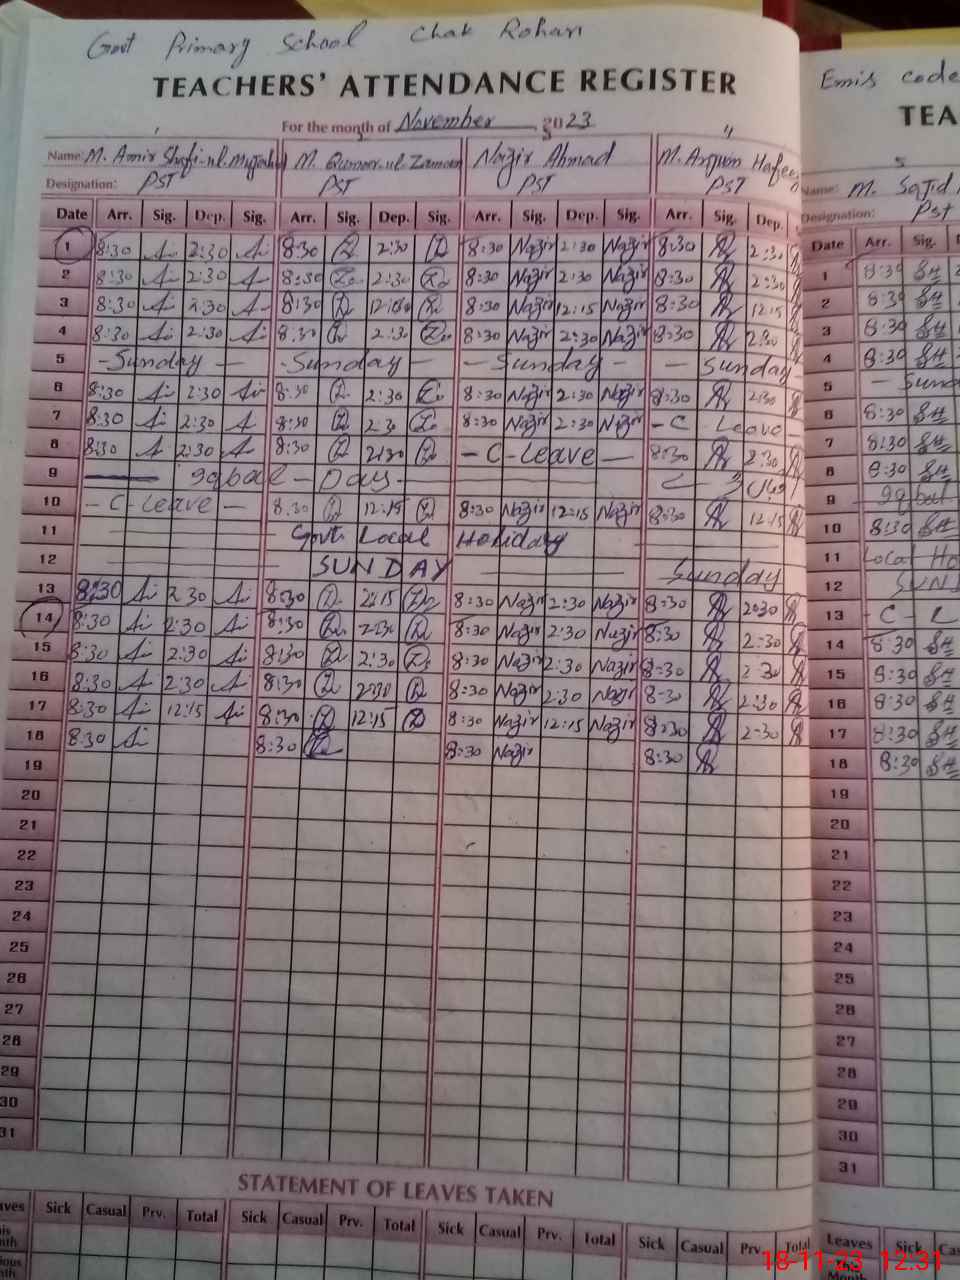 Govt Primary School Chak Rohan
Emis code
TEACHERS' ATTENDANCE REGISTER
TEA
For the month of November 2023
Name: M. Amir Shafi-ul-Mujtaba M. Qumar.ul Zaman Nazir Ahmad M. Arquam Hafeez
Name: M. Sajid
Designation: PST PST PST PST
Designation: Pst
Date Arr. Sig. Dep. Sig. Arr. Sig. Dep. Sig. Arr. Sig. Dep. Sig. Arr. Sig. Dep.
Date Arr. Sig.
1 8:30 2:30 8:30 2:30 8:30 Nazir 2:30 Nazir 8:30 2:30
1 8:30
2 8:30 2:30 8:30 2:30 8:30 Nazir 2:30 Nazir 8:30 2:30
2 8:30
3 8:30 2:30 8:30 8:30 Nazir 12:15 Nazir 8:30 12:15
3 8:30
4 8:30 2:30 8:30 2:30 8:30 Nazir 2:30 Nazir 8:30 2:30
4 8:30
5 - Sunday - - Sunday - - Sunday - - Sunday
5 -
6 8:30 2:30 8:30 2:30 8:30 Nazir 2:30 Nazir 8:30 2:30
6 8:30
7 8:30 2:30 8:30 2:30 8:30 Nazir 2:30 Nazir - C Leave -
7 8:30
8 8:30 2:30 8:30 2:30 - C - Leave - 8:30 2:30
8 8:30
9 Iqbal - Day -
9 Iqbal
10 - C - Leave - 8:30 12:15 8:30 Nazir 12:15 Nazir 8:30 12:15
10 8:30
11 Govt. Local Holiday
11 Local Ho
12 SUNDAY Sunday
12 SUN
13 8:30 2:30 8:30 2:15 8:30 Nazir 2:30 Nazir 8:30 2:30
13 - C - L
14 8:30 2:30 8:30 2:30 8:30 Nazir 2:30 Nazir 8:30 2:30
14 8:30
15 8:30 2:30 8:30 2:30 8:30 Nazir 2:30 Nazir 8:30 2:30
15 8:30
16 8:30 2:30 8:30 2:30 8:30 Nazir 2:30 Nazir 8:30 2:30
16 8:30
17 8:30 12:15 8:30 12:15 8:30 Nazir 12:15 Nazir 8:30 2:30
17 8:30
18 8:30 8:30 8:30 Nazir 8:30
18 8:30
19
19
20
20
21
21
22
22
23
23
24
24
25
25
26
26
27
27
28
28
29
29
30
30
31
31
STATEMENT OF LEAVES TAKEN
Sick Casual Prv. Total Sick Casual Prv. Total Sick Casual Prv. Total Sick Casual Prv. Total
Leaves Sick
Month
18-11-23 12:31